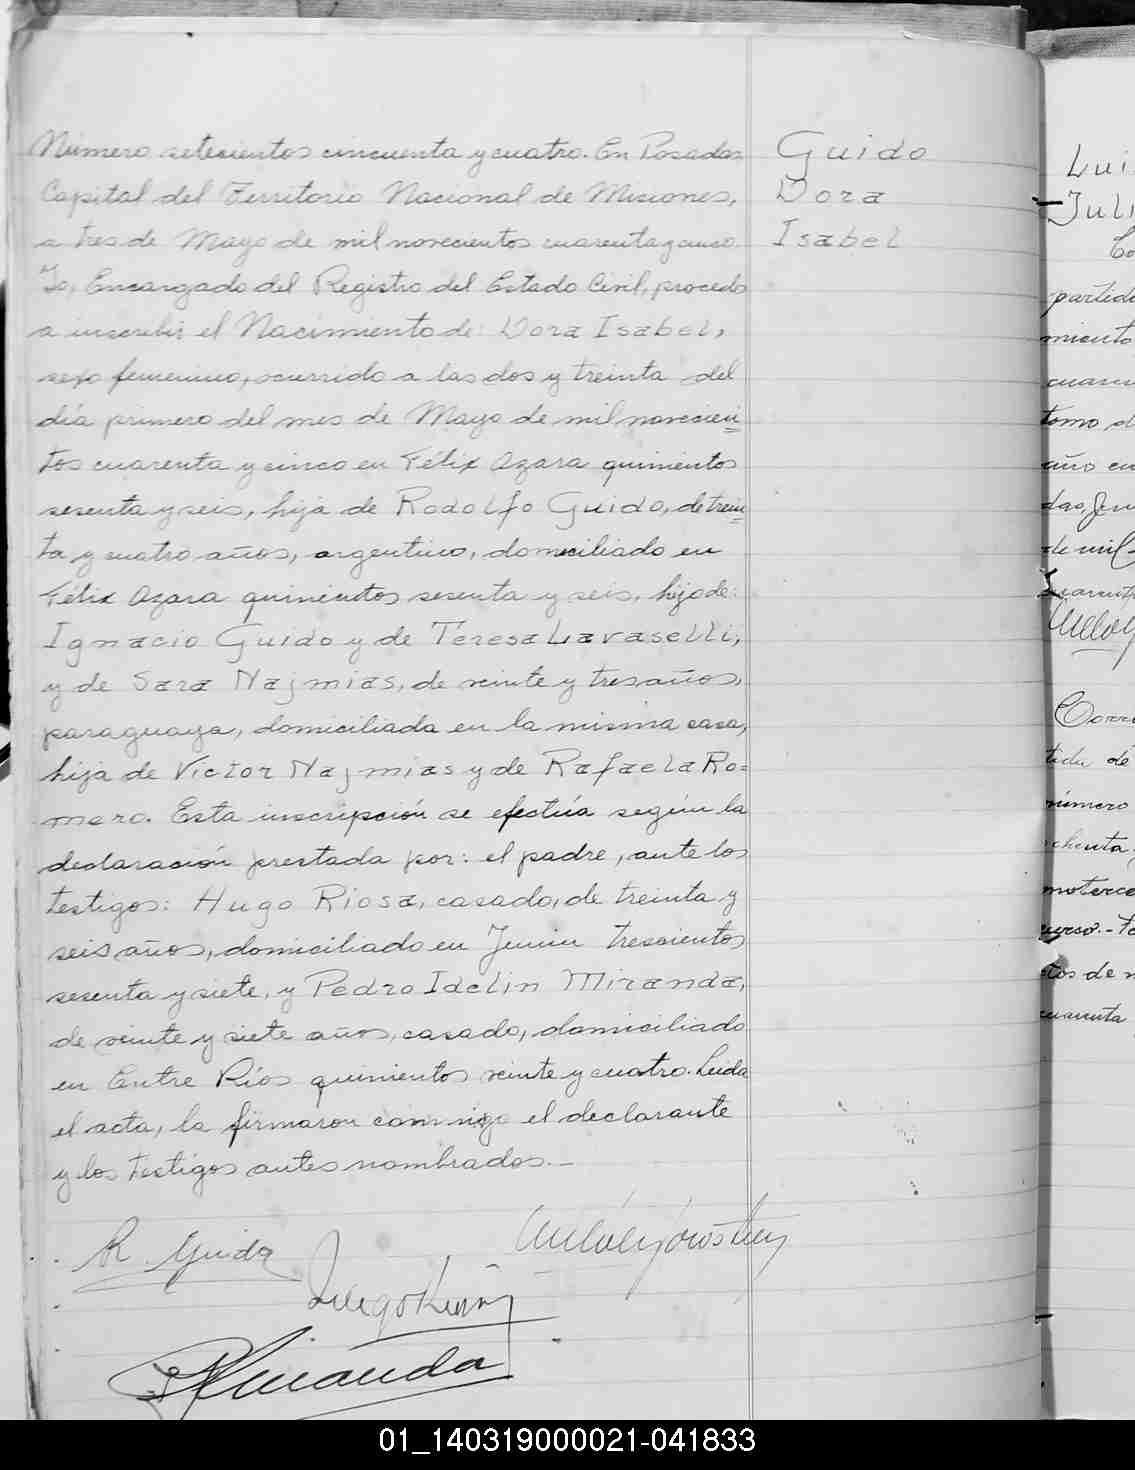 Número setecientos cincuenta y cuatro. En Posadas
Capital del Territorio Nacional de Misiones,
a tres de Mayo de mil novecientos cuarenta y cinco.
Yo, Encargado del Registro del Estado Civil, procedo
a inscribir el Nacimiento de: Dora Isabel,
sexo femenino, ocurrido a las dos y treinta del
día primero del mes de Mayo de mil novecien=
tos cuarenta y cinco en Félix Azara quinientos
sesenta y seis, hija de Rodolfo Guido, de trein=
ta y cuatro años, argentino, domiciliado en
Félix Azara quinientos sesenta y seis, hijo de:
Ignacio Guido y de Teresa Lavaselli,
y de Sara Najmias, de veinte y tres años,
paraguaya, domiciliada en la misma casa,
hija de Victor Najmias y de Rafaela Ro=
mero. Esta inscripción se efectúa según la
declaración prestada por: el padre, ante los
testigos: Hugo Riosa, casado, de treinta y
seis años, domiciliado en Junin trescientos
sesenta y siete, y Pedro Idelin Miranda,
de veinte y siete años, casado, domiciliado
en Entre Ríos quinientos veinte y cuatro. Leida
el acta, la firmaron conmigo el declarante
y los testigos antes nombrados.—
Guido
Dora
Isabel
R Guido
Miranda
Lui
Juli
Co
partida
miento
tomo d
año en
de mil
Corre
tida de
número
chenta
curso.-
tos de n
cuarenta
01_140319000021-041833